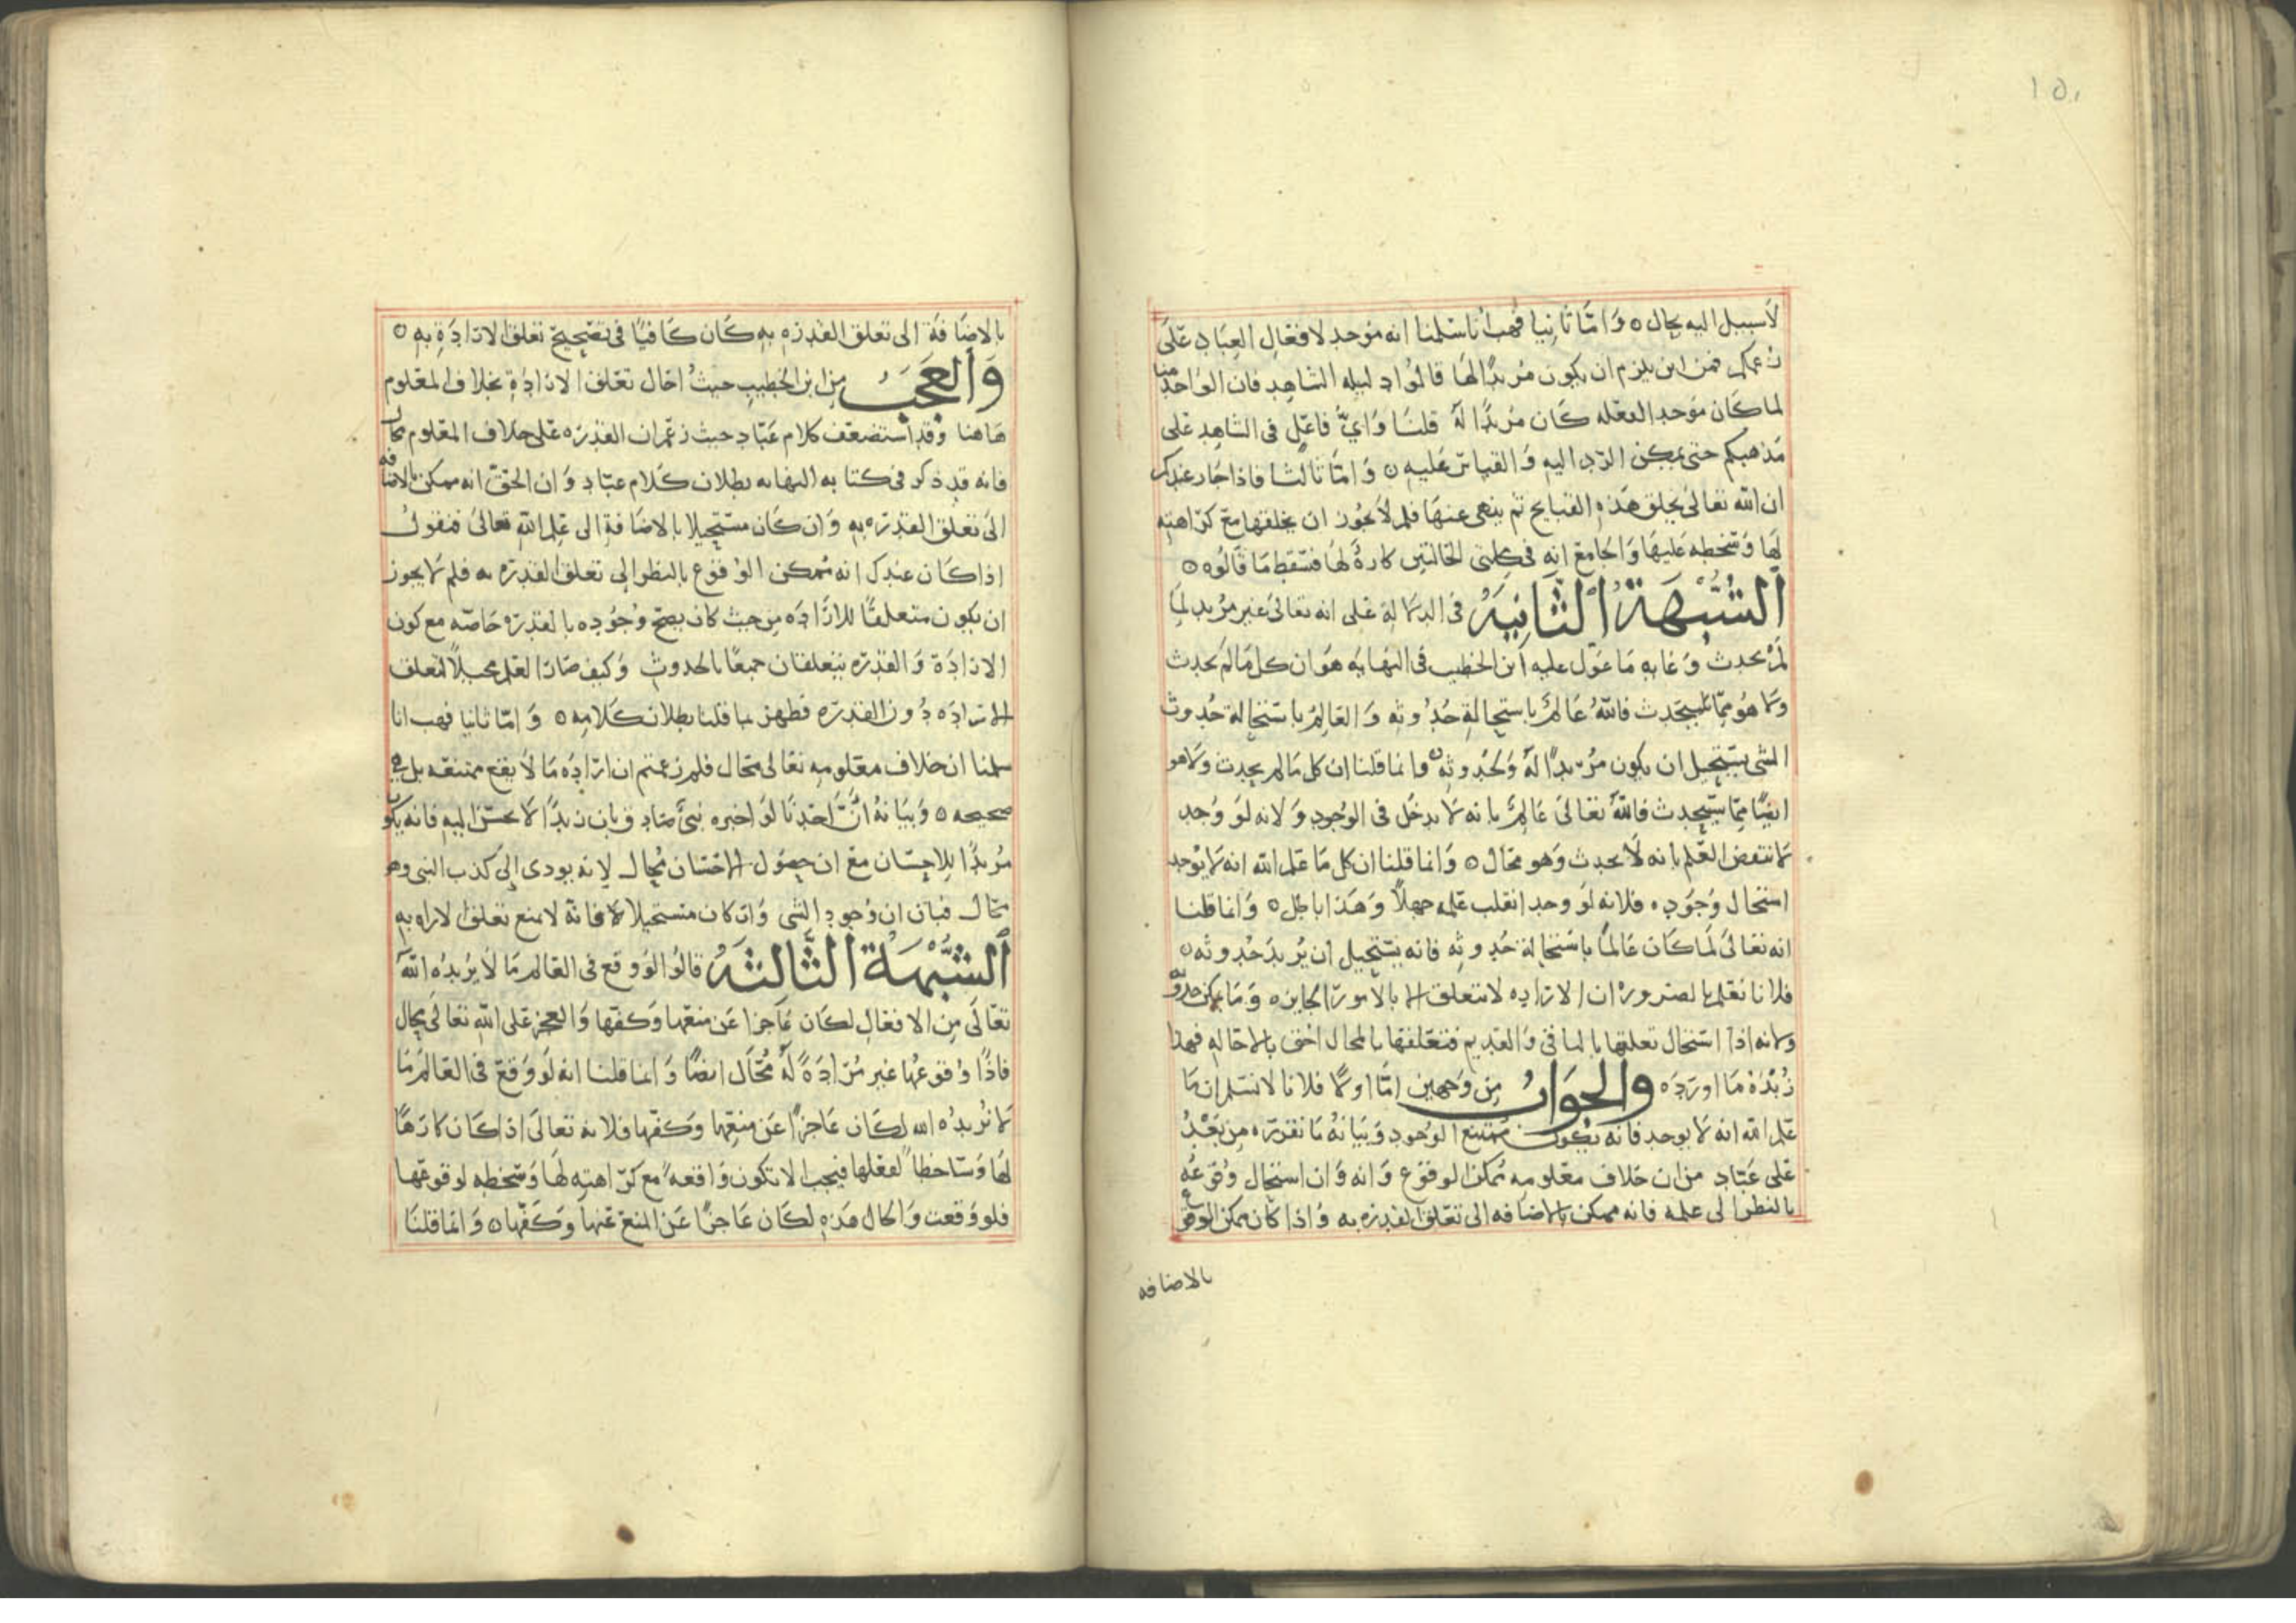 ١٥٠
لا سبيل اليه بحال ٥ وَامّا ثانيا فهب انا سلمنا انه موجد لافعال العِبَادِ عَلَى
زعمكم فمن اين يلزم ان يكون مُريدًا لهَا قالوا دليله الشاهد فان الوَاحد منا
لما كَان مُوجد الفعله كَان مُريدًا لهُ قلنا وَايُّ فاعل في الشاهِد عَلى
مَذهبكم حتى يمكن الرّد اليه وَالقياس عَليه ٥ وَامّا ثالثا فاذا جَاز عندكم
ان الله تعَالىٰ يخلق هَذهِ القبايح ثم ينهى عنهَا فلم لا يَجُوز ان يخلقها مع كرَاهته
لَهَا وَسخطه عَليهَا وَالجامع انه في كلتى الحَالتين كارهٌ لهَا فسَقط مَا قالُوه ٥
الشُّبْهَةُ الثَّانِيَةُ في الدلالة عَلى انه تعَالىٰ غير مُريد لما
لم يحدث وَغايه مَا عَوّل عليه ابن الخطيب في النهايه هَوَ ان كل مَا لم يحدث
ولا هُو ممّا سيحدث فاللهُ عَالمٌ باستحالةِ حُدُوثه وَالعَالمُ باستحالة حُدوث
الشى يستحيل ان يكون مُريدًا لهُ وَلحُدوثه ٥ وانما قلنا ان كل مَا لم يحدث ولا هو
ايضًا ممّا سَيحدث فاللهُ تعَالىٰ عَالمٌ بانه لا يدخل في الوُجودِ وَلانه لوَ وُجد
لانتقض العِلم بانه لا يحدث وَهو محَال ٥ وَانما قلنا ان كل مَا عَلم الله انه لا يوُجد
استحَال وُجُودِه فلانه لوَ وجد انقلب علمه جهلاً وَهَذا باطِل ٥ وَانما قلنا
انه تعَالىٰ لمَا كَان عَالمًا باستحالة حُدوثه فانه يستحيل ان يُريدَ حُدوثه ٥
فلانا نعلم بالضروره ان الارَاده لا تتعلق الا بالامور الجايزه وَمَا يمكن حدوثه
ولانه اذا استحَال تعلقها بالباقي وَالقديم فتعَلقها بالمحال احق بالاحَاله فهذا
زُبْدَةُ مَا اورَدَه وَالجَوَابُ مِن وَجهين امَّا اولاً فلانا لا نسَلم ان مَا
علم الله انه لا يوجد فانه يَكُون ممتنع الوجود وَبَيَانهُ مَا نقرّره مِن بَعْدُ
عَلى عَبّاد من ان خلاف معْلومه مُمكن الوقوع وَانه وَان استحَال وُقوعُه
بالنظر الى علمه فانه ممكن بالاضَافه الى تعَلق القدره به وَاذا كان ممكن الوقوع
بالاضافه
بالاضَافَة الى تعَلق القدرَه بهِ كَان كَافيًا في تصْحيح تعَلق الارَادَةِ بهِ ٥
وَالعَجَبُ مِن ابن الخطيب حَيثُ احَال تعَلق الارَادَةِ بخلاف المعْلوم
هَاهنا وَقد استضعَف كلام عَبّاد حيث زعَم ان القدرَه عَلى خلاف المعْلوم محَال
فانه قد ذكر في كتابه النهايه بطلان كَلام عبّاد وَان الحقّ انه ممكن بالاضافه
الىَ تعَلق القدرَه بهِ وَان كَان مستحيلا بالاضَافةِ الى عِلم الله تعَالىَ فنقول
اذا كَان عندك انه مُمكن الوُقوع بالنظر اِلى تعَلق القدرَه به فلم لا يجوز
ان يكون متعلقًا للارَادَه مِن حيث كان يصحّ وُجُوده بالقدرَه خاصّه مع كون
الارَادَة وَالقدرَه يتعلقان جميعًا بالحدوثِ وَكيف صَار العلم محيلاً لتعلق
الارَادَه دُون القدرَه فظهر بما قلنا بطلان كَلامِه ٥ وَامّا ثانيا فهب انا
سلمنا ان خلاف معْلومه تعَالى محَال فلم زعمتم ان ارَادَه مَا لا يقع ممتنعَه بل هى
صَحيحه ٥ وَبيَانهُ أَنَّ احَدنَا لوَ اخبره نبىٌّ صَادِق بان زيدًا لا يحسن اليه فانه يكون
مُريدًا للاحسَان معَ ان حصُول الاحسَان مُحَال لانه يودى اِلى كذب النبى وهو
محَال فبَان ان وُجود الشى وَان كان مستحيلا فانه لا يمنع تعَلق الاراده به
الشُّبْهَةُ الثَّالثَةُ قالوُا لوُ وقع في العَالم مَا لا يُريدُه اللهُ
تعَالَى مِن الافعَال لكَان عَاجزا عَن منعهَا وَكفهَا وَالعجز عَلى الله تعَالىَ محال
فاذًا وُقوعُها غير مُرَادَةً لهُ مُحَال ايضًا وَانما قلنا انه لوَ وَقعَ في العَالم مَا
لا يُريدُه الله لكَان عَاجزًا عَن منعِهَا وَكفّها فلانه تعَالىَ اذا كَان كارهًا
لهَا وَسَاخطاً لفعْلها فيجب الا تكون وَاقعةً مع كرَاهته لهَا وَسخطه لوقوعهَا
فلو وَقعت وَالحال هَذهِ لكَان عَاجزًا عَن المنع عَنهَا وَكَفّهَا ٥ وَانما قلنا